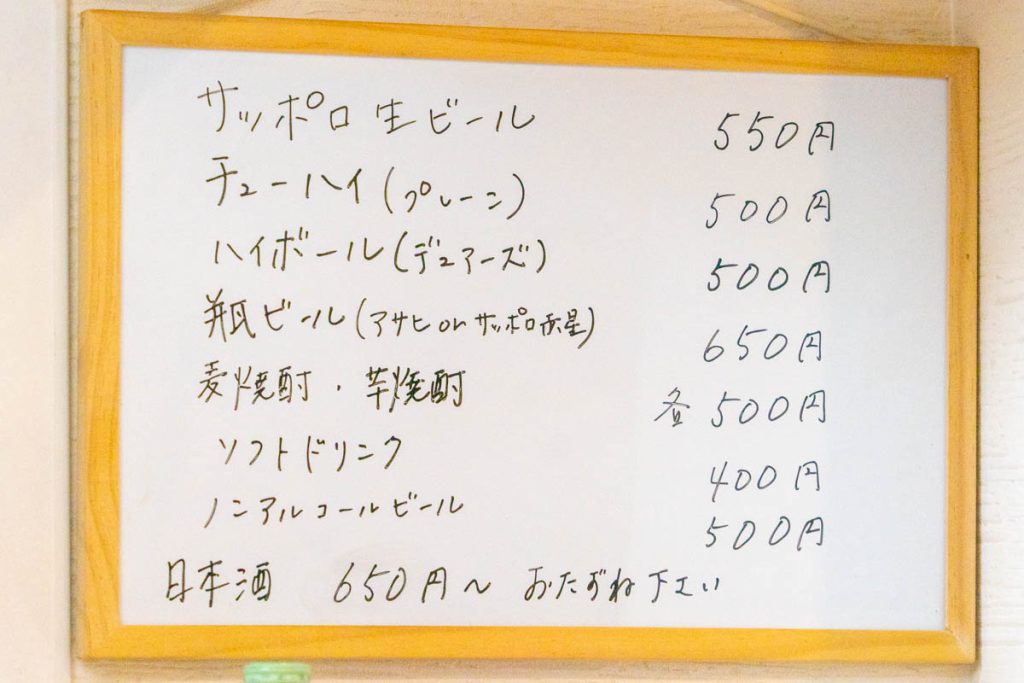 サッポロ生ビール 550円
チューハイ(プレーン) 500円
ハイボール(デュアーズ) 500円
瓶ビール(アサヒorサッポロ赤星) 650円
麦焼酎・芋焼酎 各500円
ソフトドリンク 400円
ノンアルコールビール 500円
日本酒 650円〜 おたずね下さい